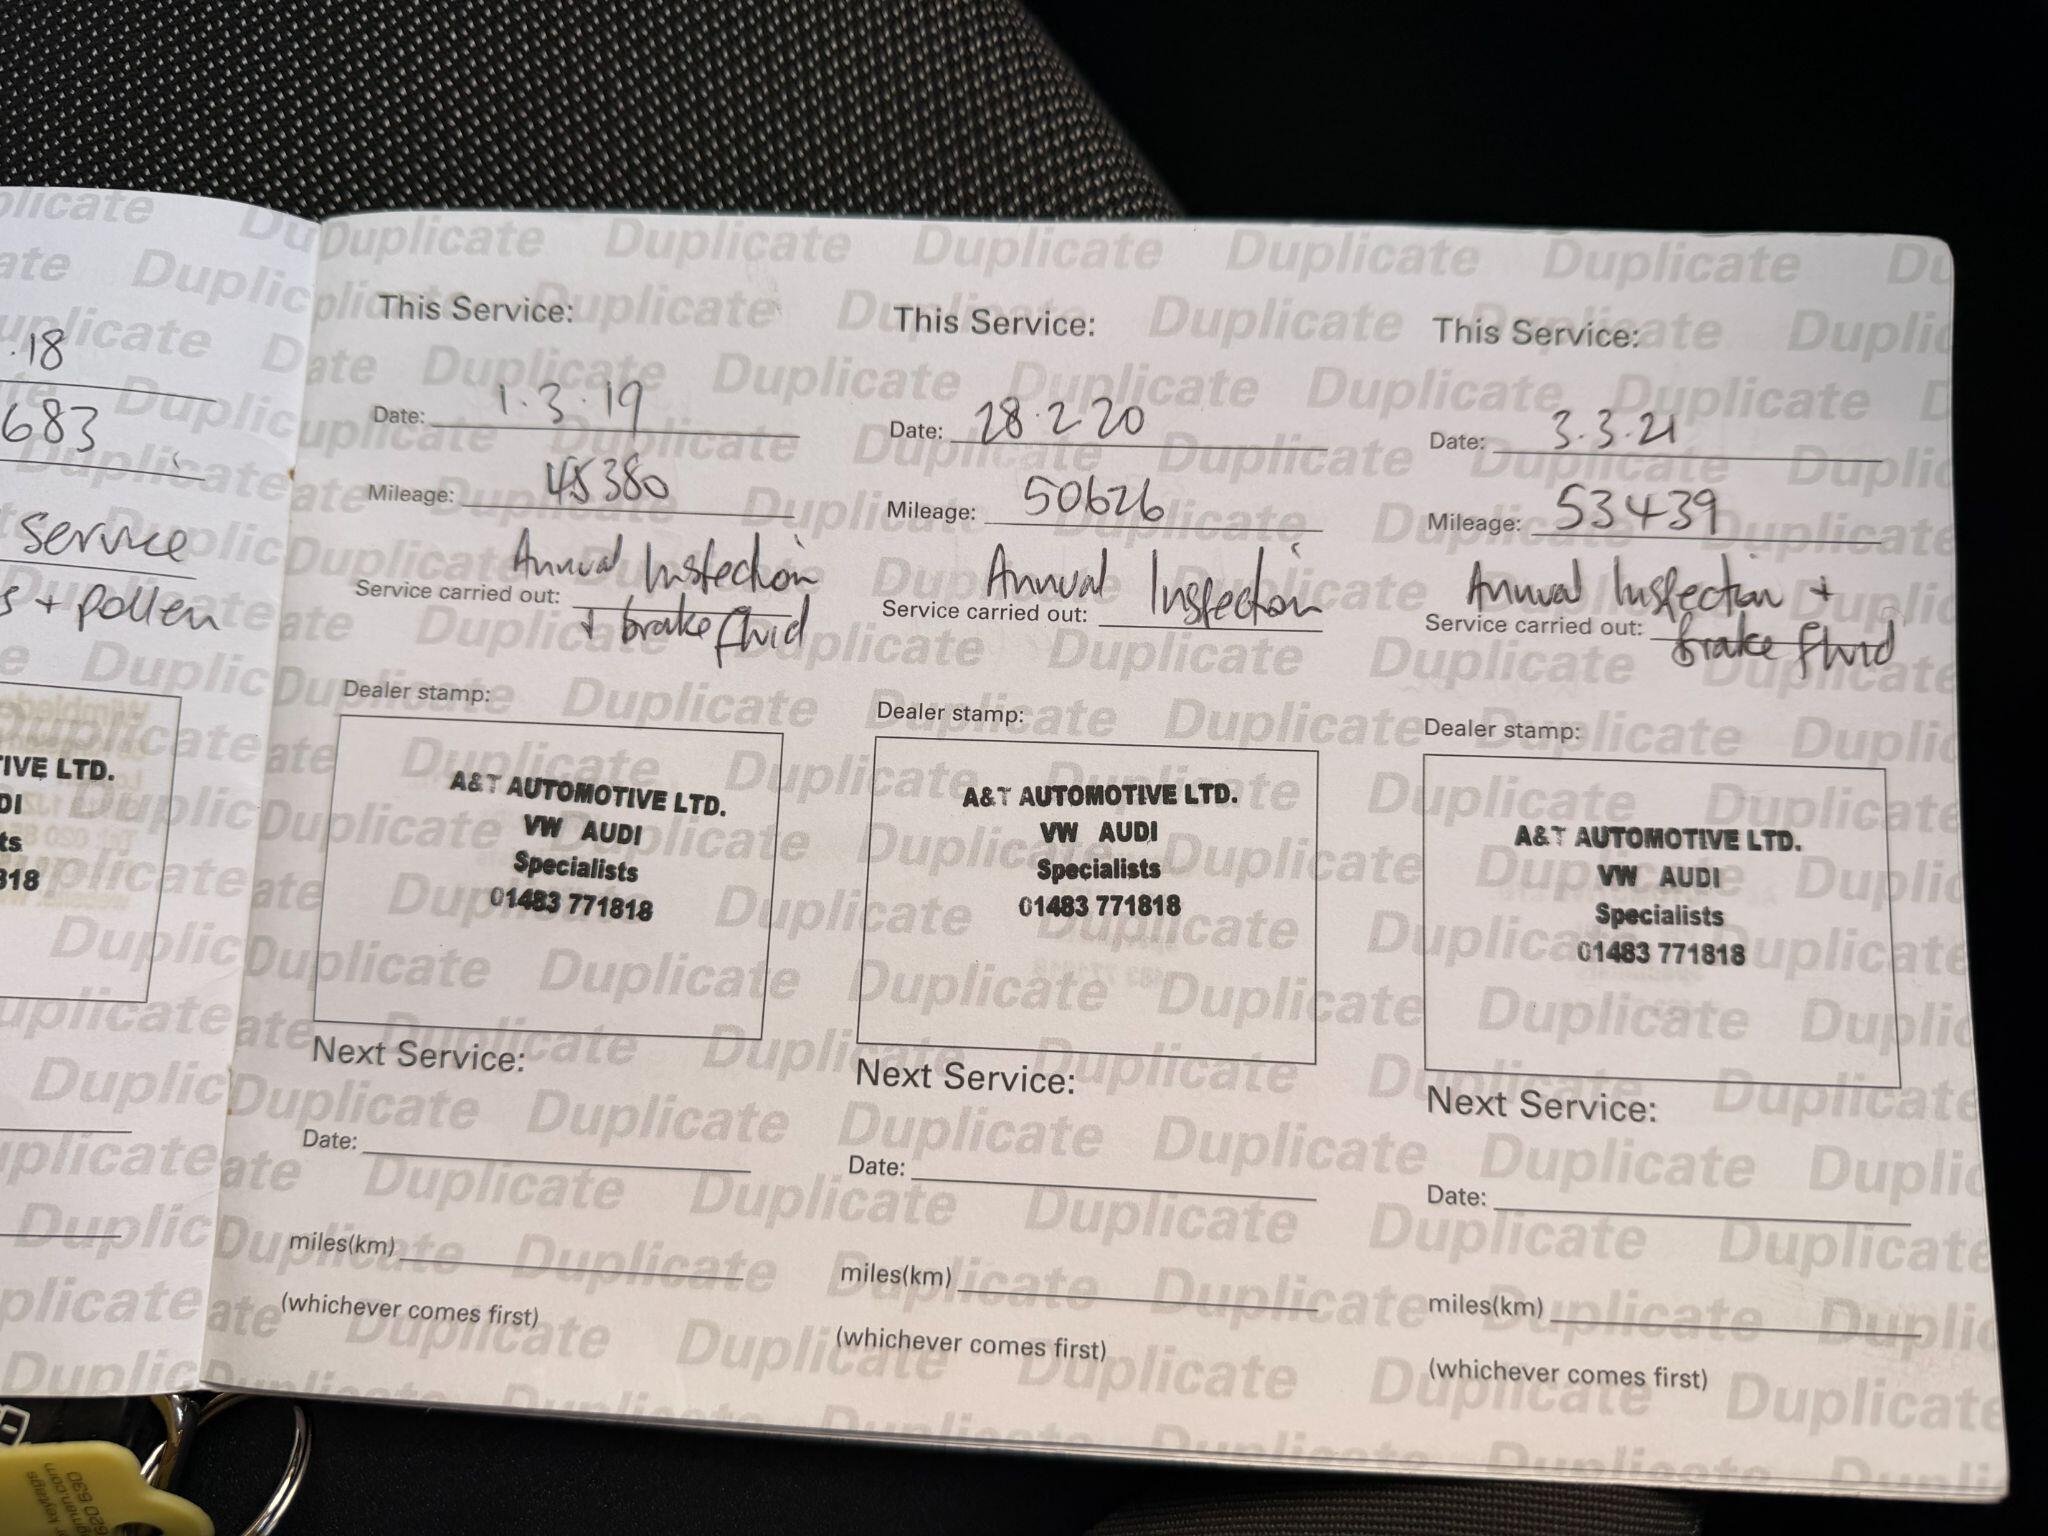 .18
683
service
s + pollen
IVE LTD.
DI
ts
318
This Service:
Date: 1.3.19
Mileage: 45380
Annual Inspection
Service carried out: + brake fluid
Dealer stamp:
A&T AUTOMOTIVE LTD.
VW AUDI
Specialists
01483 771818
Next Service:
Date:
miles(km)
(whichever comes first)
This Service:
Date: 28.2.20
Mileage: 50626
Annual Inspection
Service carried out:
Dealer stamp:
A&T AUTOMOTIVE LTD.
VW AUDI
Specialists
01483 771818
Next Service:
Date:
miles(km)
(whichever comes first)
This Service:
Date: 3.3.21
Mileage: 53439
Annual Inspection +
Service carried out: brake fluid
Dealer stamp:
A&T AUTOMOTIVE LTD.
VW AUDI
Specialists
01483 771818
Next Service:
Date:
miles(km)
(whichever comes first)
Duplicate Duplicate Duplicate Duplicate Duplicate